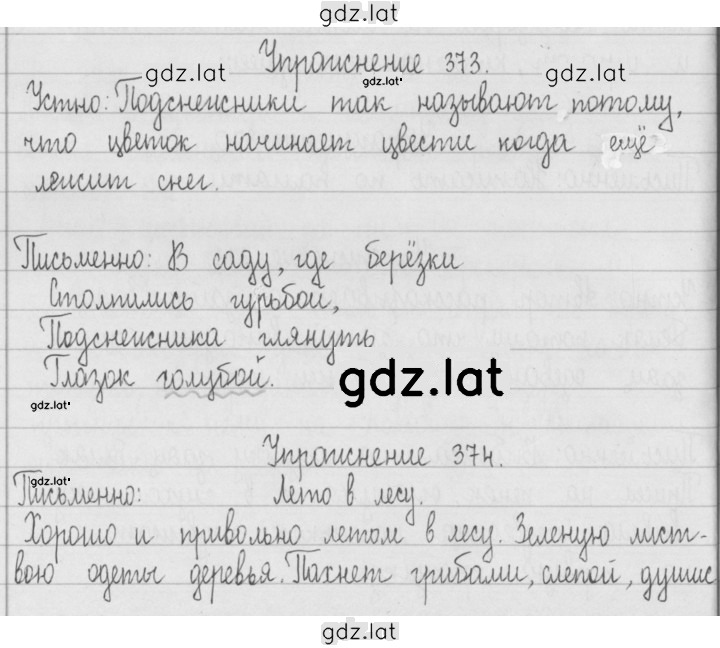 gdz.lat
Упражнение 373.
gdz.lat
gdz.lat
gdz.lat
Устно: Подснежники так называют потому,
что цветок начинает цвести когда ещё
лежит снег.
Письменно: В саду, где берёзки
Столпились гурьбой,
Подснежника глянуть
Глазок голубой.
gdz.lat
gdz.lat
Упражнение 374.
gdz.lat
Письменно: Лето в лесу.
Хорошо и привольно летом в лесу. Зеленую лист-
вою одеты деревья. Пахнет грибами, спелой, душис
gdz.lat